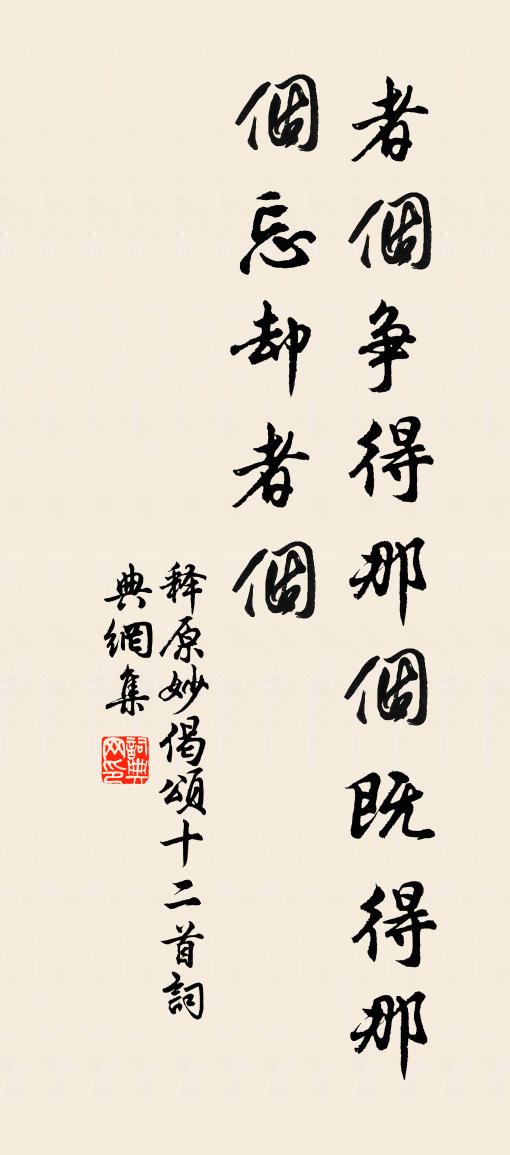 者個争得那個既得那
個忘却者個
释原妙偈頌十二首詞
典網集
詞典網印